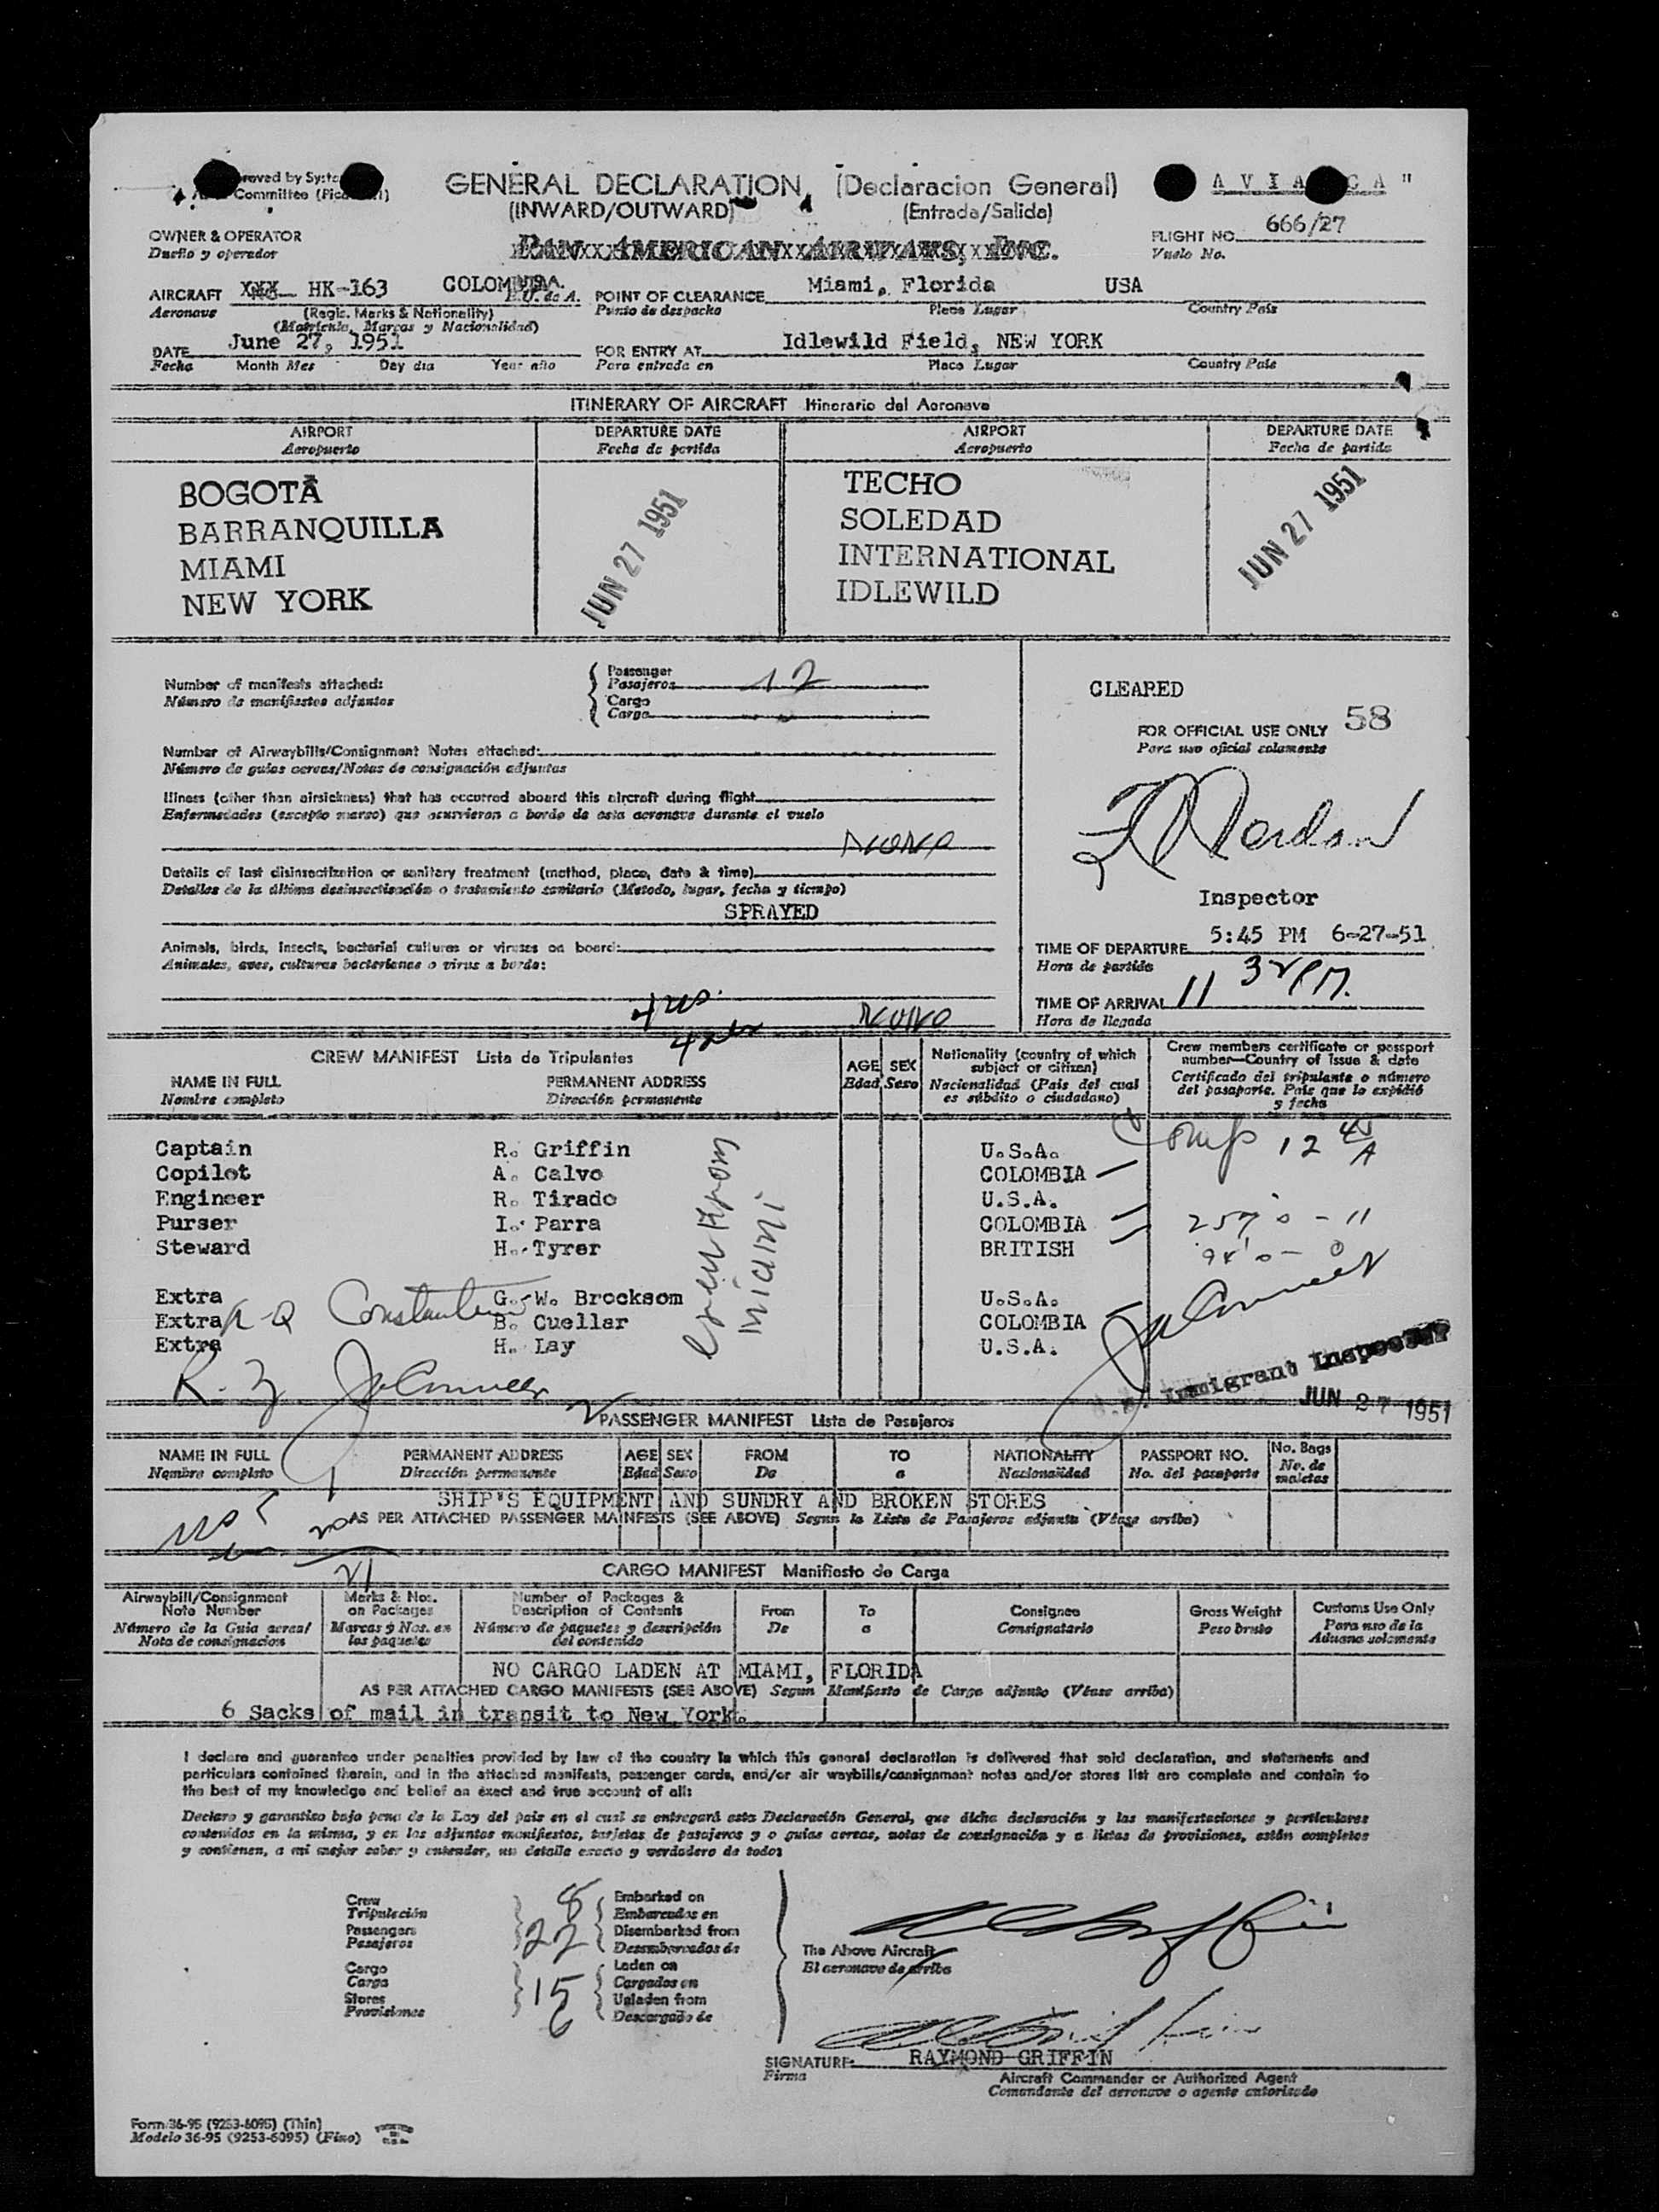 GENERAL DECLARATION, (Declaracion General)
(INWARD/OUTWARD) (Entrada/Salida)
Committee
OWNER & OPERATOR
Dueño y operador
PAN AMERICAN AIRWAYS, INC.
FLIGHT NO. 666/27
Vuelo No.
AIRCRAFT HK-163 COLOMBIA
Aeronave
(Regis. Marks & Nationality)
(Matricula, Marcas y Nacionalidad)
POINT OF CLEARANCE Miami, Florida USA
Punto de despacho Place Lugar Country País
DATE June 27, 1951
Fecha Month Mes Day dia Year año
FOR ENTRY AT Idlewild Field, NEW YORK
Para entrada en Place Lugar Country País
ITINERARY OF AIRCRAFT Itinerario del Aeronave
AIRPORT DEPARTURE DATE AIRPORT DEPARTURE DATE
Aeropuerto Fecha de partida Aeropuerto Fecha de partida
BOGOTÁ TECHO
BARRANQUILLA SOLEDAD
MIAMI INTERNATIONAL
NEW YORK IDLEWILD
JUN 27 1951 JUN 27 1951
Number of manifests attached:
Número de manifiestos adjuntos
Passenger
Pasajeros 12
Cargo
Carga
Number of Airwaybills/Consignment Notes attached:
Número de guias aereas/Notas de consignación adjuntas
Illness (other than airsickness) that has occurred aboard this aircraft during flight
Enfermedades (excepto mareo) que ocurrieron a bordo de esta aeronave durante el vuelo
None
Details of last disinsectization or sanitary treatment (method, place, date & time)
Detalles de la última desinsectización o tratamiento sanitario (Metodo, lugar, fecha y tiempo)
SPRAYED
Animals, birds, insects, bacterial cultures or viruses on board:
Animales, aves, culturas bacterianas o virus a bordo:
None
CLEARED
FOR OFFICIAL USE ONLY 58
Para uso oficial solamente
Inspector
TIME OF DEPARTURE 5:45 PM 6-27-51
Hora de partida
TIME OF ARRIVAL 11 32 PM.
Hora de llegada
CREW MANIFEST Lista de Tripulantes
NAME IN FULL PERMANENT ADDRESS
Nombre completo Dirección permanente
AGE SEX
Edad Sexo
Nationality (country of which subject or citizen)
Nacionalidad (Pais del cual es súbdito o ciudadano)
Crew members certificate or passport number—Country of Issue & date
Certificado del tripulante o número del pasaporte. Pais que lo expidió y fecha
Captain R. Griffin U.S.A.
Copilot A. Calvo COLOMBIA
Engineer R. Tirado U.S.A.
Purser I. Parra COLOMBIA
Steward H. Tyrer BRITISH
Extra G. W. Brocksom U.S.A.
Extra B. Cuellar COLOMBIA
Extra H. Lay U.S.A.
Crew from
Miami
Immigrant Inspector
JUN 27 1951
PASSENGER MANIFEST Lista de Pasajeros
NAME IN FULL PERMANENT ADDRESS AGE SEX FROM TO NATIONALITY PASSPORT NO. No. Bags
Nombre completo Dirección permanente Edad Sexo De a Nacionalidad No. del pasaporte No. de maletas
SHIP'S EQUIPMENT AND SUNDRY AND BROKEN STORES
AS PER ATTACHED PASSENGER MAINFESTS (SEE ABOVE) Segun la Lista de Pasajeros adjunta (Véase arriba)
21
CARGO MANIFEST Manifiesto de Carga
Airwaybill/Consignment Note Number
Número de la Guia aerea/ Nota de consignacion
Marks & Nos. on Packages
Marcas y Nos. en los paquetes
Number of Packages & Description of Contents
Número de paquetes y descripción del contenido
From To Consignee Gross Weight Customs Use Only
De a Consignatario Peso bruto Para uso de la Aduana solamente
NO CARGO LADEN AT MIAMI, FLORIDA
AS PER ATTACHED CARGO MANIFESTS (SEE ABOVE) Segun Manifiesto de Carga adjunto (Véase arriba)
6 Sacks of mail in transit to New York.
I declare and guarantee under penalties provided by law of the country in which this general declaration is delivered that said declaration, and statements and
particulars contained therein, and in the attached manifests, passenger cards, and/or air waybills/consignment notes and/or stores list are complete and contain to
the best of my knowledge and belief an exact and true account of all:
Declaro y garantizo bajo pena de la Ley del pais en el cual se entregará esta Declaración General, que dicha declaración y las manifestaciones y particulares
contenidos en la misma, y en los adjuntos manifiestos, tarjetas de pasajeros y o guias aereas, notas de consignación y o listas de provisiones, están completos
y contienen, a mi mejor saber y entender, un detalle exacto y verdadero de todos
Crew 8 Embarked on
Tripulación Embarcados en
Passengers 22 Disembarked from
Pasajeros Desembarcados de
Cargo 15 Laden on
Carga Cargados en
Stores 6 Unladen from
Provisiones Descargado de
The Above Aircraft
El aeronave de arriba
SIGNATURE: RAYMOND GRIFFIN
Firma
Aircraft Commander or Authorized Agent
Comandante del aeronave o agente autorizado
Form 36-95 (9253-6095) (Thin)
Modelo 36-95 (9253-6095) (Fino)